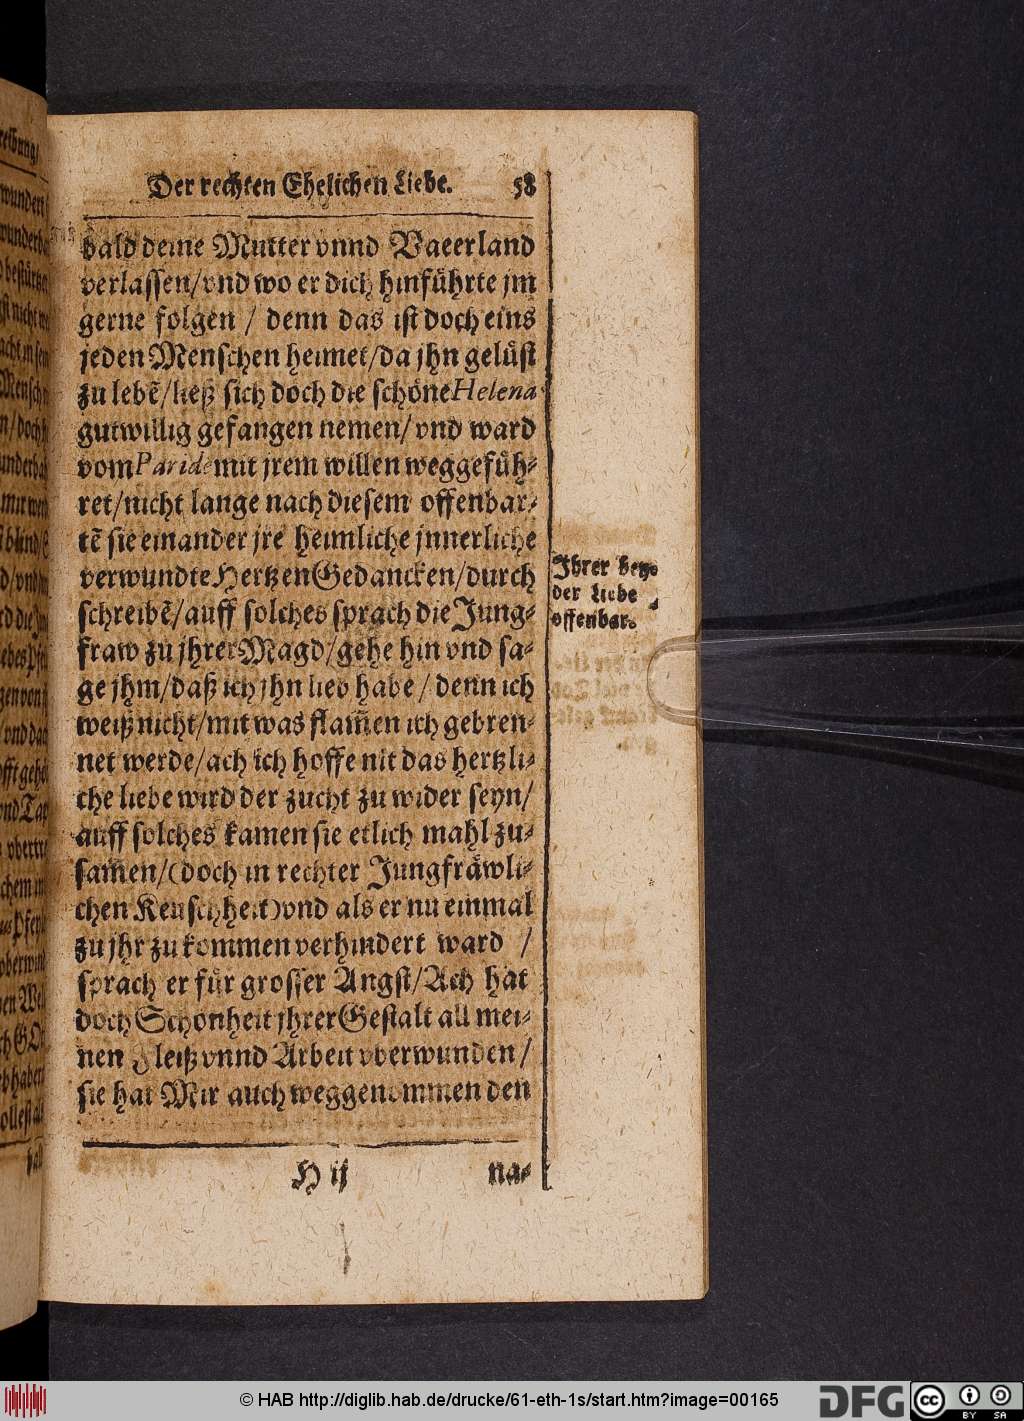 Der rechten Ehelichen Liebe. 58
bald deine Mutter vnnd Vaeerland
verlassen/vnd wo er dich hinführte jm
gerne folgen / denn das ist doch eins
jeden Menschen heimet/da jhn gelüst
zu lebẽ/ließ sich doch die schöne Helena
gutwillig gefangen nemen/ vnd ward
vom Paride mit jrem willen weggefüh-
ret/nicht lange nach diesem offenbar-
tẽ sie einander jre heimliche jnnerliche
verwundte Hertzen Gedancken/durch
schreibẽ/auff solches sprach die Jung-
fraw zu jhrer Magd/gehe hin vnd sa-
ge jhm/daß ich jhn lieb habe / denn ich
weiß nicht/mit was flam̃en ich gebren-
net werde/ach ich hoffe nit das hertzli-
che liebe wird der zucht zu wider seyn/
auff solches kamen sie etlich mahl zu-
sam̃en/(doch in rechter Jungfräwli-
chen Keuschheit)vnd als er nu einmal
zu jhr zu kommen verhindert ward /
sprach er für grosser Angst/Ach hat
doch Schönheit jhrer Gestalt all mei-
nen Fleiß vnnd Arbeit vberwunden/
sie hat Mir auch weggenommen den
H ij na-
Ihrer bey-
der Liebe
offenbar.
© HAB http://diglib.hab.de/drucke/61-eth-1s/start.htm?image=00165
DFG
cc BY SA